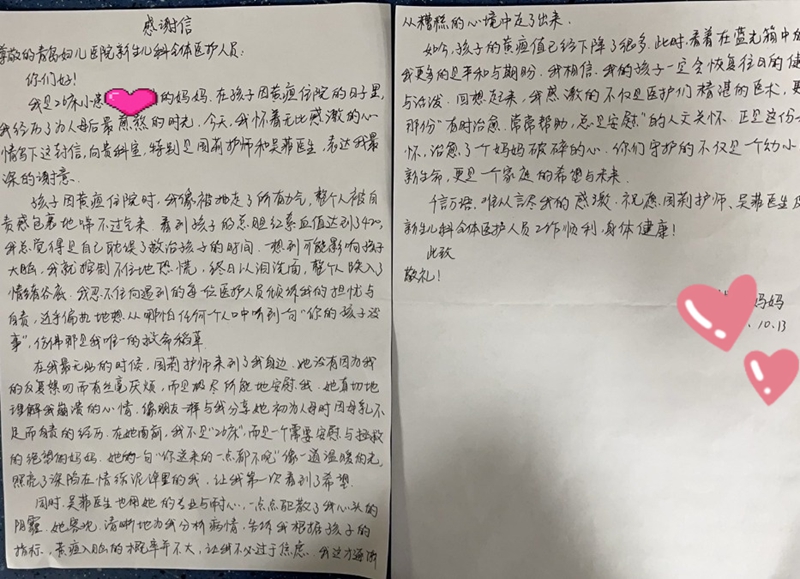 感谢信
尊敬的青岛妇儿医院新生儿科全体医护人员:
你们好!
我是26床小患 的妈妈。在孩子因黄疸住院的日子里,
我经历了为人母后最煎熬的时光。今天,我怀着无比感激的心
情写下这封信,向贵科室,特别是周莉护师和吴霏医生,表达我最
深的谢意。
孩子因黄疸住院时,我像被抽走了所有力气,整个人被自
责感包裹地喘不过气来。看到孩子的总胆红素血值达到了420,
我总觉得是自己耽误了救治孩子的时间。想到可能影响孩子
大脑,我就控制不住地恐慌,终日以泪洗面,整个人跌入了
情绪谷底。我忍不住向遇到的每一位医护人员倾诉我的担忧与
自责,近乎偏执地想从哪怕任何一个人口中听到一句“你的孩子没
事”,仿佛那是我唯一的救命稻草。
在我最无助的时候,周莉护师来到了我身边。她没有因为我
的反复絮叨而有丝毫厌烦,而是极尽所能地安慰我。她真切地
理解我崩溃的心情,像朋友一样与我分享她初为人母时因母乳不
足而自责的经历。在她面前,我不是“26床”,而是一个需要安慰与拯救
的绝望的妈妈。她的一句“你送来的一点都不晚”像一道温暖的光,
照亮了深陷在情绪泥潭里的我,让我第一次看到了希望。
同时,吴霏医生也用她的专业与耐心,一点点驱散了我心头的
阴霾。她客观、清晰地为我分析病情,告诉我根据孩子的
指标,黄疸入脑的概率并不大,让我不必过于焦虑。我这才逐渐
从糟糕的心境中走了出来。
如今,孩子的黄疸值已经下降了很多。此时,看着在蓝光箱中的
我更多的是平和与期盼。我相信,我的孩子一定会恢复往日的健
与活泼。回想起来,我感激的不仅是医护们精湛的医术,更
那份“有时治愈,常常帮助,总是安慰”的人文关怀。正是这份关
怀,治愈了一个妈妈破碎的心。你们守护的不仅是一个幼小
新生命,更是一个家庭的希望与未来。
千言万语,难以言尽我的感激。祝愿周莉护师、吴霏医生及
新生儿科全体医护人员工作顺利,身体健康!
此致
敬礼!
妈妈
.10.13